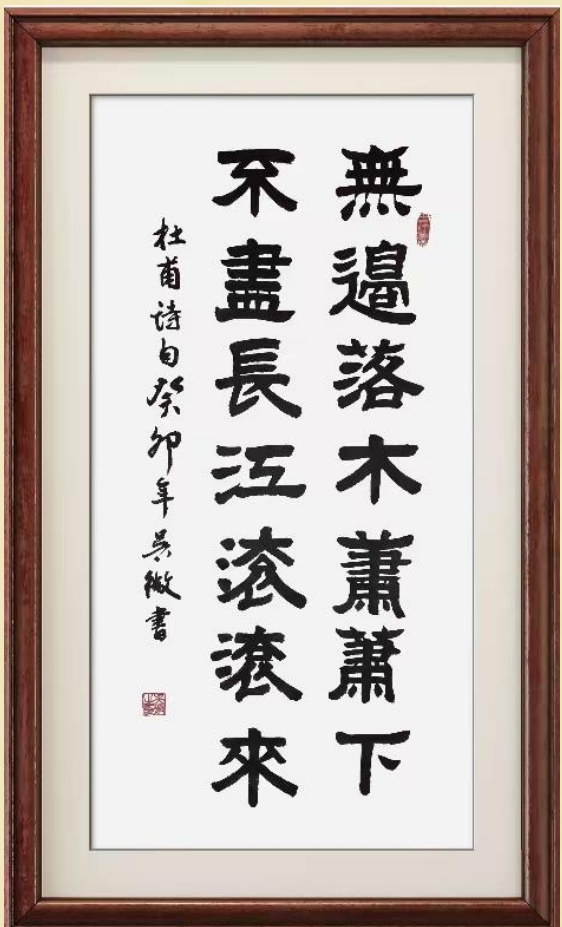 無邊落木蕭蕭下
不盡長江滚滚來
杜甫诗句癸卯年吴微書